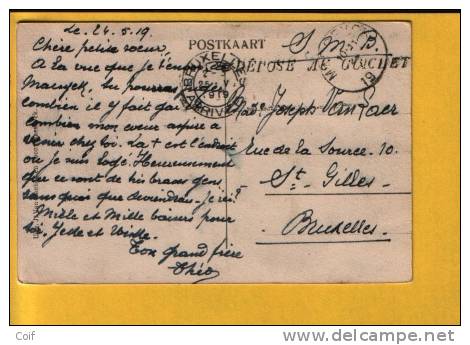 Le. 24.5.19
Chère petite sœur,
A la vue que je t'envoie de
tu pourras juger
combien il y fait gai et
combien mon cœur aspire à
venir chez toi. La + est l'endroit
où je suis logé. Heureusement
que ce sont de braves gens
sans quoi que deviendrai-je ici?
Mille et Mille baisers pour
toi, Jede et
Ton grand frère
Théo
POSTKAART
S.M.B.
DÉPOSÉ AU GUICHET
BRUXELLES
ARRIVÉE
Joseph Van Laer
Rue de la Source. 10.
St. Gilles
Bruxelles
Coif
www.delcampe.net